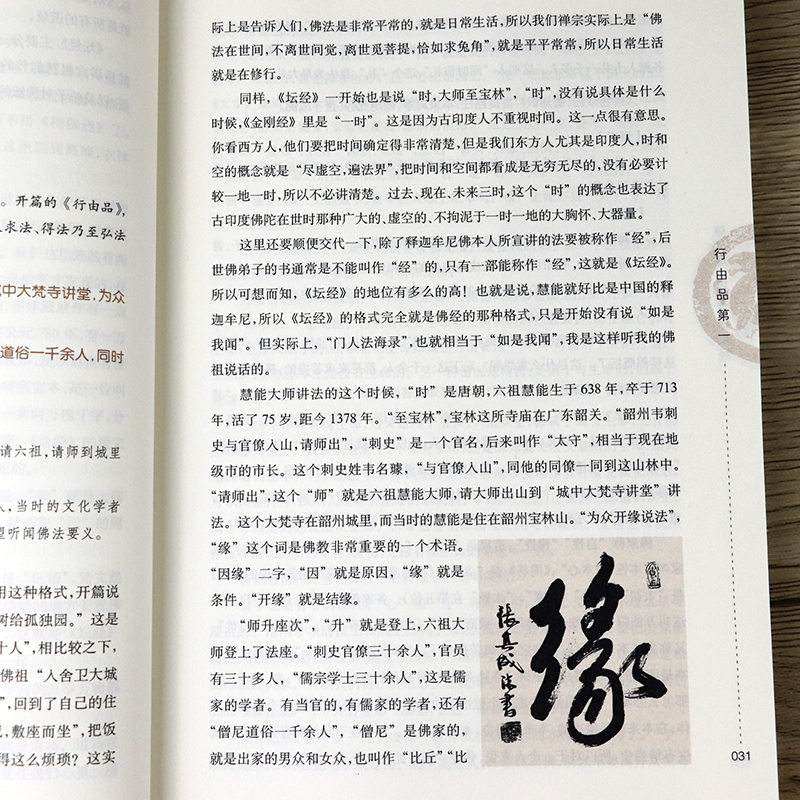 。开篇的《行由品》，
求法、得法乃至弘法
中大梵寺讲堂，为众
道俗一千余人，同时
请六祖，请师到城里
，当时的文化学者
望听闻佛法要义。
用这种格式，开篇说
树给孤独园。”这是
十人”，相比较之下，
佛祖“入舍卫大城
”，回到了自己的住
，敷座而坐”，把饭
得这么烦琐？这实
际上是告诉人们，佛法是非常平常的，就是日常生活，所以我们禅宗实际上是“佛
法在世间，不离世间觉，离世觅菩提，恰如求兔角”，就是平平常常，所以日常生活
就是在修行。
同样，《坛经》一开始也是说“时，大师至宝林”，“时”，没有说具体是什么
时候，《金刚经》里是“一时”。这是因为古印度人不重视时间。这一点很有意思。
你看西方人，他们要把时间确定得非常清楚，但是我们东方人尤其是印度人，时和
空的概念就是“尽虚空，遍法界”，把时间和空间都看成是无穷无尽的，没有必要计
较一地一时，所以不必讲清楚。过去、现在、未来三时，这个“时”的概念也表达了
古印度佛陀在世时那种广大的、虚空的、不拘泥于一时一地的大胸怀、大器量。
这里还要顺便交代一下，除了释迦牟尼佛本人所宣讲的法要被称作“经”，后
世佛弟子的书通常是不能叫作“经”的，只有一部能称作“经”，这就是《坛经》。
所以可想而知，《坛经》的地位有多么的高！也就是说，慧能就好比是中国的释
迦牟尼，所以《坛经》的格式完全就是佛经的那种格式，只是开始没有说“如是
我闻”。但实际上，“门人法海录”，也就相当于“如是我闻”，我是这样听我的佛
祖说话的。
慧能大师讲法的这个时候，“时”是唐朝，六祖慧能生于638年，卒于713
年，活了75岁，距今1378年。“至宝林”，宝林这所寺庙在广东韶关。“韶州韦刺
史与官僚入山，请师出”，“刺史”是一个官名，后来叫作“太守”，相当于现在地
级市的市长。这个刺史姓韦名璩，“与官僚入山”，同他的同僚一同到这山林中。
“请师出”，这个“师”就是六祖慧能大师，请大师出山到“城中大梵寺讲堂”讲
法。这个大梵寺在韶州城里，而当时的慧能是住在韶州宝林山。“为众开缘说法”，
“缘”这个词是佛教非常重要的一个术语。
“因缘”二字，“因”就是原因，“缘”就是
条件。“开缘”就是结缘。
“师升座次”，“升”就是登上，六祖大
师登上了法座。“刺史官僚三十余人”，官员
有三十多人，“儒宗学士三十余人”，这是儒
家的学者。有当官的，有儒家的学者，还有
“僧尼道俗一千余人”，“僧尼”是佛家的，
就是出家的男众和女众，也叫作“比丘”“比
缘
行由品第一
031